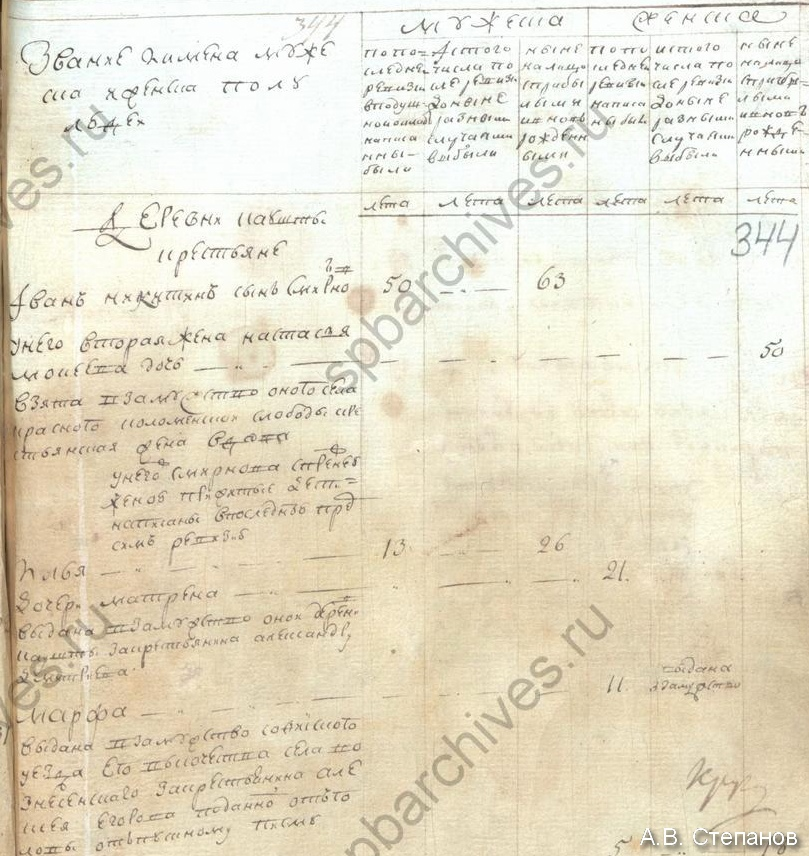 344
МУЖЕСКА
ЖЕНСКА
Звание и имена муже
ска и женска полу
людех
по по
следней
ревизии
в подуш
ном окладе
написа
нны
были
из того
числа по
сле ревизии
до ныне
разными
случаями
выбыли
ныне
на лицо
с прибы
лыми
и новъ
рожден
ными
по по
следней
ревизии
написа
ны были
из того
числа по
сле ревизии
до ныне
разными
случаями
выбыли
ныне
на лицо
с прибы
лыми
и новъ
рожде
нными
лета лета лета лета лета лета
Деревни паушты
крестьяне
344
Иванъ никитинъ сынъ Смирно 50 63
у него вторая жена настасья
моисеева дочь 50
взята в замужство оного села
красного коломенской слободы кре
стьянская жена вдова
у него Смирнова с первой
женой прижитые дети
написаны в последней пред
сим ревизии
Илья 13 26
дочери матрена 21.
выдана в замужство оной дерев
паушты за крестьянина александру
дмитриева
Марфа 11. выдана
в замужство
выдана в замужство софийского
уезда Его высочества села во
знесенского за крестьянина але
ксея Егорова поданно от
лопы отпускному письму
5
А.В. Степанов
spbarchives.ru
spbarchives.ru